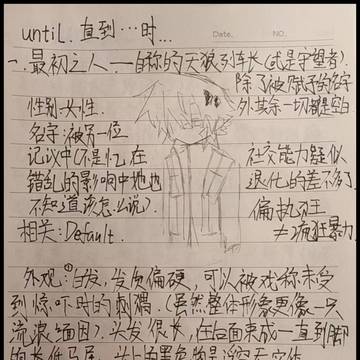 until. 直到…时…
Date.
NO.
一.最初之人.—自称的天狼列车长(或是守望者).
除了被赋予的名字
外其余一切都是空白
性别:女性.
名字:被另一位
记议中(不是忆,在
错乱的影响中她也
不知道该怎么说).
相关:Default.
社交能力疑似
退化的差不多
偏执狂
≠疯狂暴力
外观:①白发,发质偏硬,可以被戏称未受
到惊吓时的刺猬.(虽然整体形象更像一只
流浪
头发很长,在后面束成一直到脚